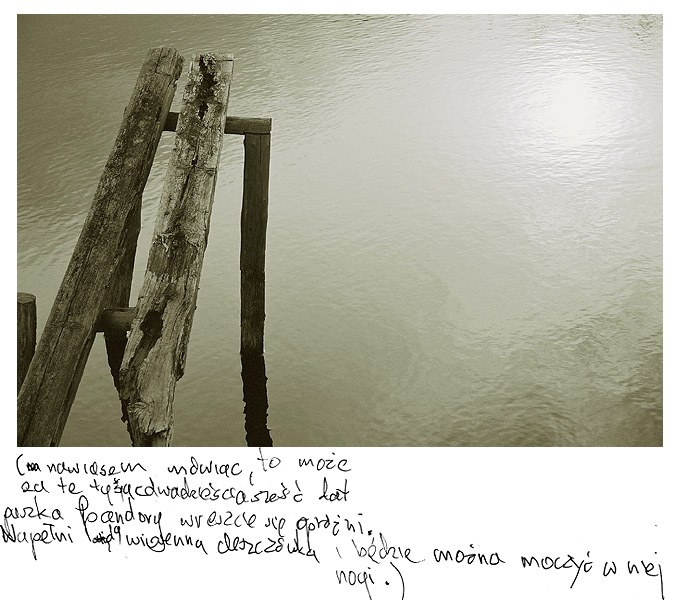 ( nawiasem mówiąc, to może
za te tysiącdwadzieściasześć lat
puszka Pandory wreszcie się opróżni.
Napełni się wiosenną deszczówką i będzie można moczyć w niej
nogi.)